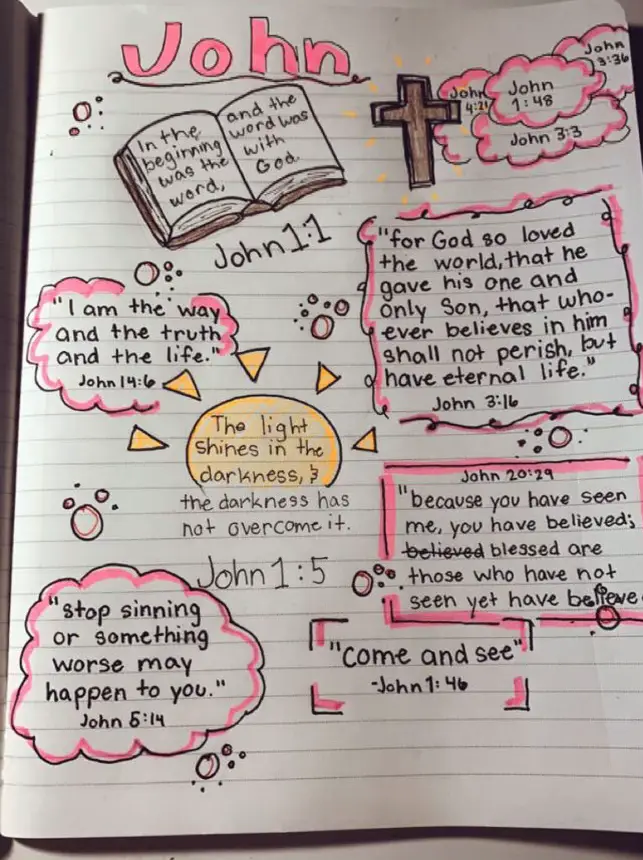 John
In the
beginning
was the
word,
and the
word was
with
God.
John 1:1
John
3:36
John
4:21
John
1:48
John 3:3
"for God so loved
the world, that he
gave his one and
only Son, that who-
ever believes in him
shall not perish, but
have eternal life."
John 3:16
"I am the way
and the truth
and the life."
John 14:6
The light
shines in the
darkness, &
the darkness has
not overcome it.
John 1:5
John 20:29
"because you have seen
me, you have believed;
believed blessed are
those who have not
seen yet have believe
"stop sinning
or something
worse may
happen to you."
John 5:14
"Come and see"
-John 1:46